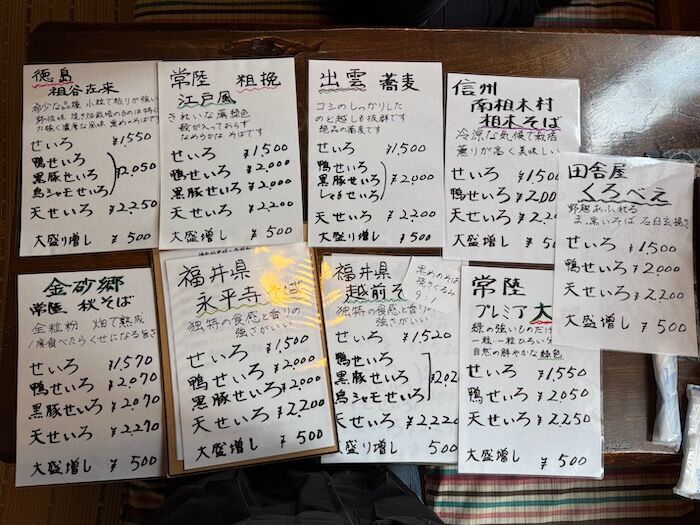 徳島
祖谷在来
希少な品種 小粒で粘りが強い
野性味 焼き畑栽培のものは特に
力強く濃厚な風味 黒めのそばです
せいろ ¥1550
鴨せいろ
黒豚せいろ
烏シャモせいろ
2,050
天せいろ ¥2,250
大盛り増し ¥500
常陸 粗挽
江戸風
きれいな薄緑色
殻が入っておらず
なめらかな そばです
せいろ ¥1,500
鴨せいろ ¥2,000
黒豚せいろ ¥2,000
天せいろ ¥2,200
大盛増し ¥500
出雲 蕎麦
コシのしっかりした
のど越しも抜群です
絶品の蕎麦です
せいろ ¥1,500
鴨せいろ
黒豚せいろ
しゃもせいろ
¥2,000
天せいろ ¥2,200
大盛増し ¥500
信州
南相木村
相木そば
冷涼な気候で栽培
薫りが高く美味しい
せいろ ¥1,500
鴨せいろ ¥2,00
天せいろ ¥2,2
大盛増し ¥50
田舎屋
くろべえ
野趣あふれる
ま、黒いそば 石臼玄挽き
せいろ ¥1,500
鴨せいろ ¥2,000
天せいろ ¥2,200
大盛増し ¥500
金砂郷
常陸 秋そば
全粒粉 畑で熟成
1度食べたらくせになる旨さ
せいろ ¥1,570
鴨せいろ ¥2,070
黒豚せいろ ¥2,070
天せいろ ¥2,270
大盛増し ¥500
福井県
永平寺そば
独特の食感と香りの
強さがいい
せいろ ¥1,500
鴨せいろ ¥2,000
黒豚せいろ ¥2,000
天せいろ ¥2,200
大盛増し ¥500
福井県
越前そ
独特の食感と香りの
強さがいい
黒めのそば
挽きぐるみ
せいろ ¥1,520
鴨せいろ
黒豚せいろ
烏シャモせいろ
¥202
天せいろ ¥2,220
大盛り増し 500
常陸
プレミア 大
緑の強いものだけ
一粒、一粒ひろい
自然の鮮やかな緑色
せいろ ¥1,550
鴨せいろ ¥2,050
天せいろ ¥2,250
大盛増し ¥500